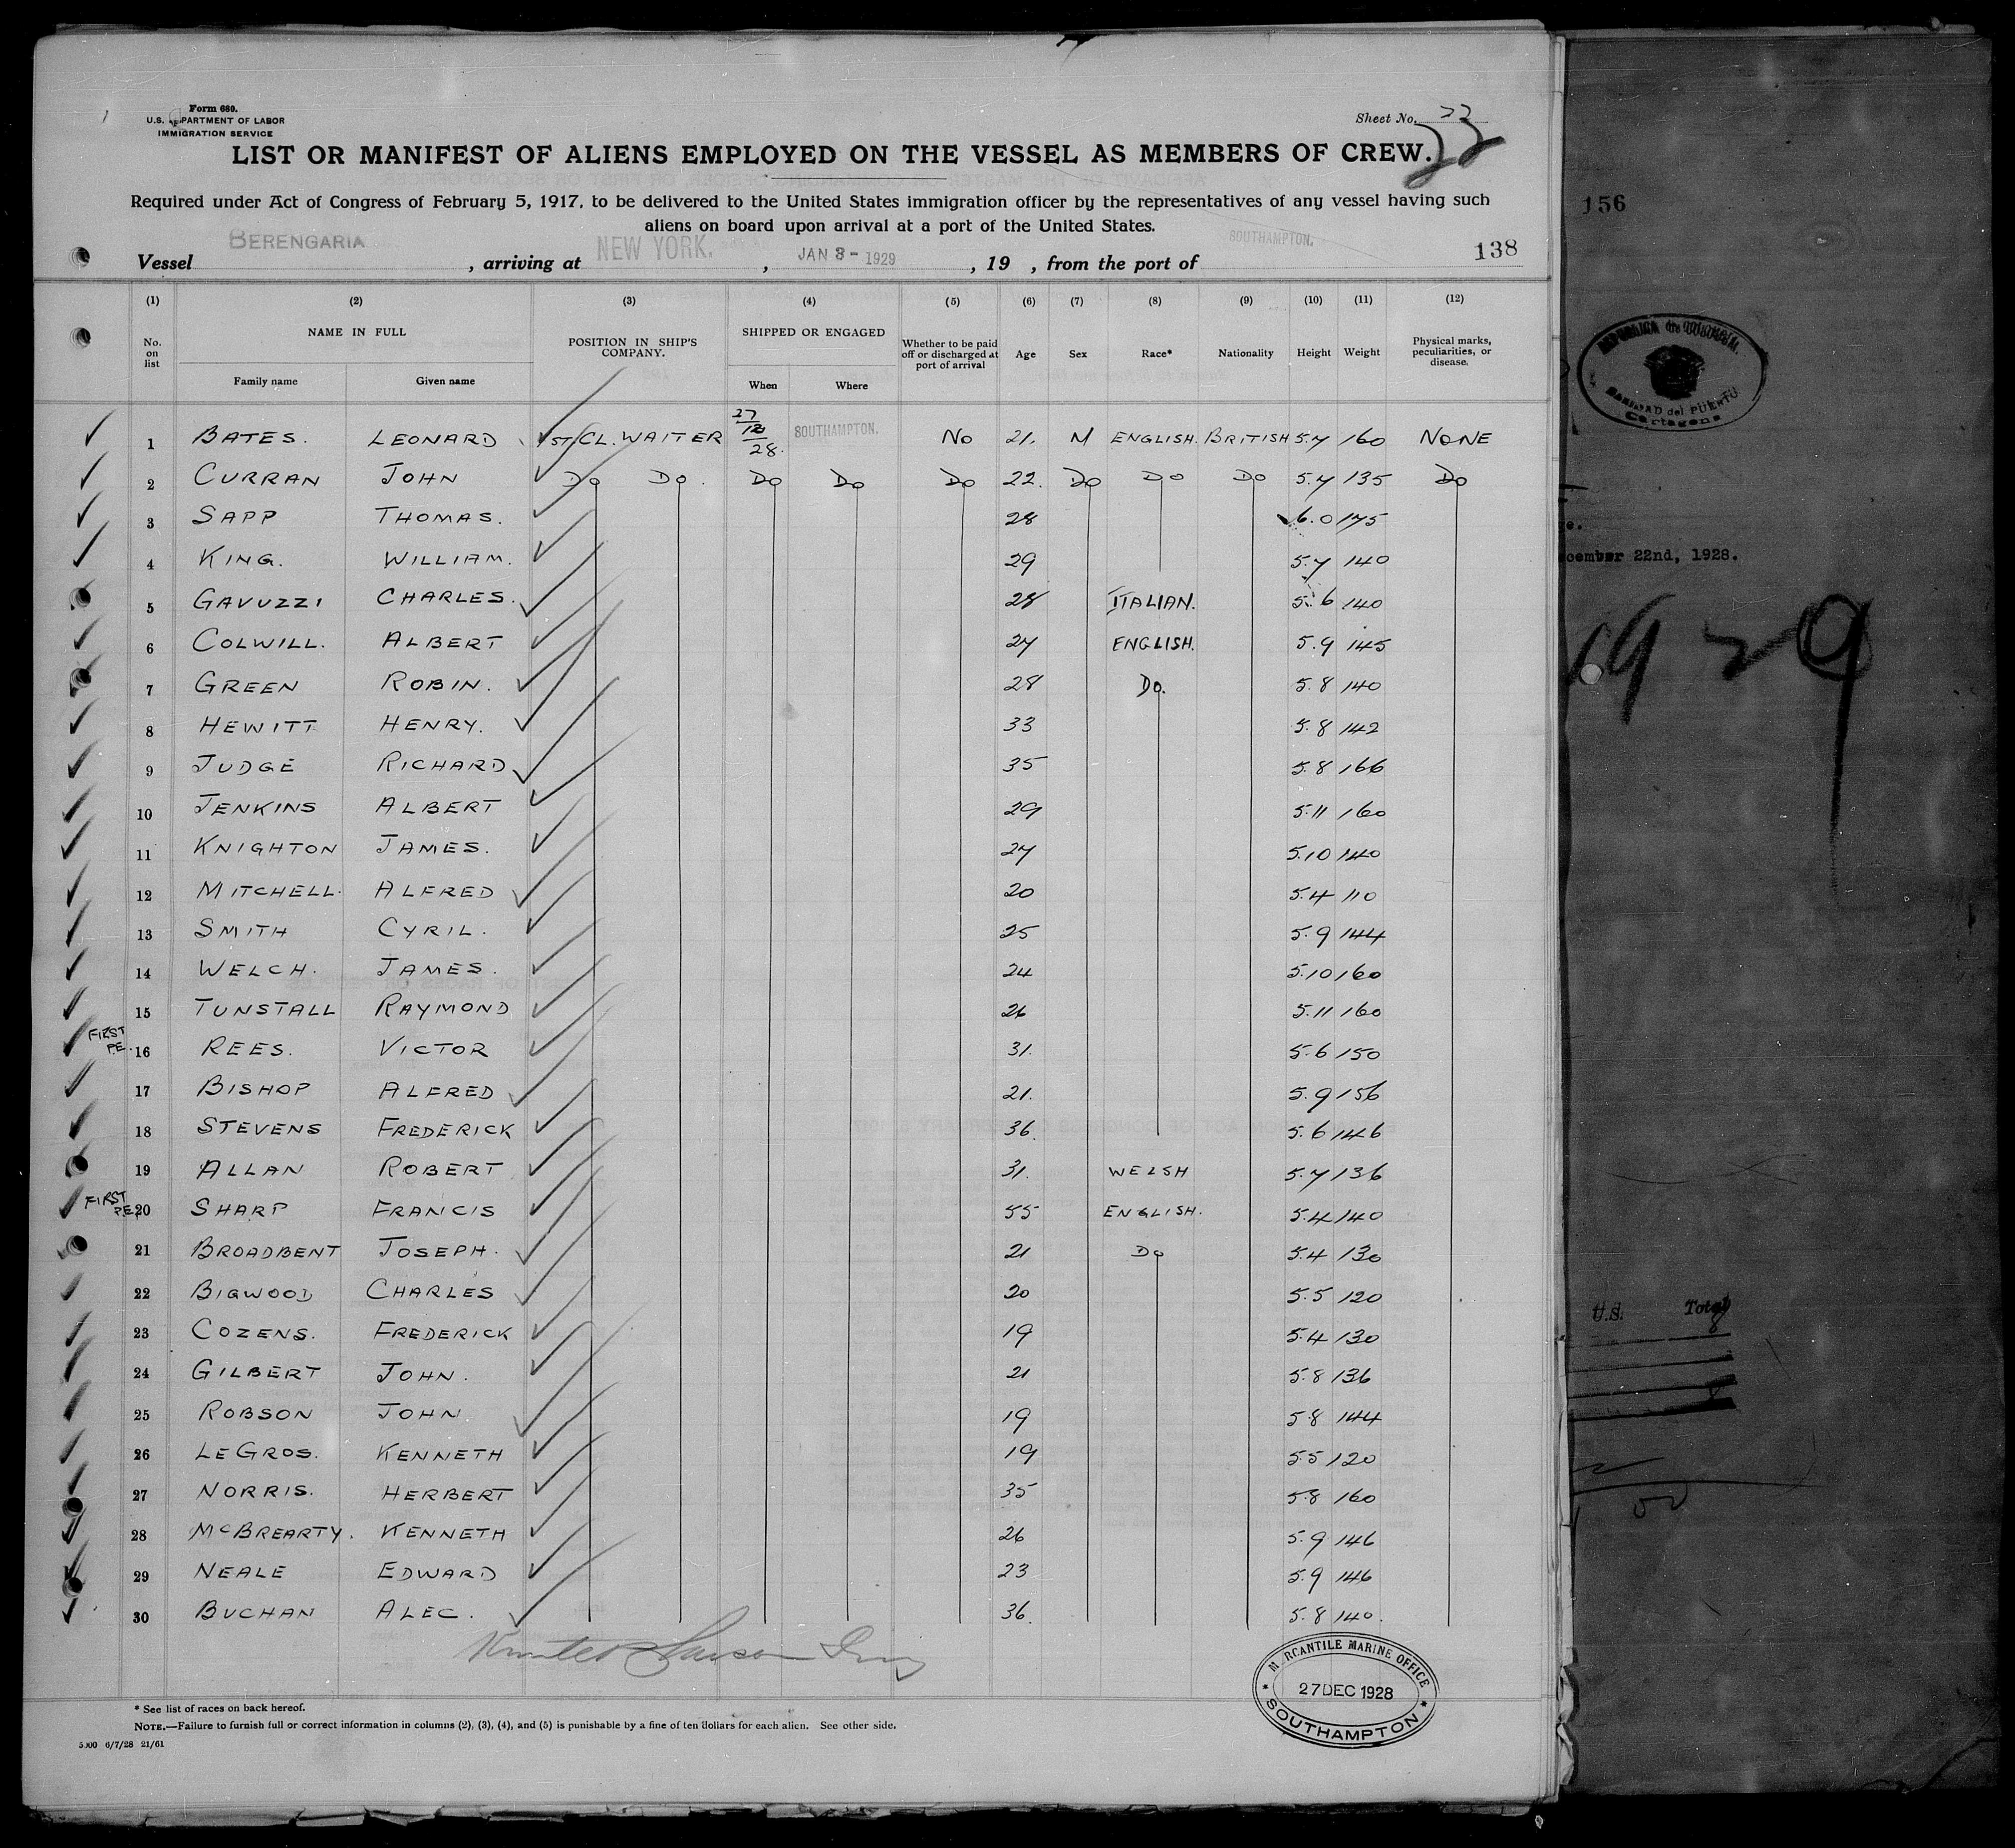 Form 680.
U.S. DEPARTMENT OF LABOR
IMMIGRATION SERVICE
Sheet No. 22
22
LIST OR MANIFEST OF ALIENS EMPLOYED ON THE VESSEL AS MEMBERS OF CREW.
Required under Act of Congress of February 5, 1917, to be delivered to the United States immigration officer by the representatives of any vessel having such
aliens on board upon arrival at a port of the United States.
Vessel BERENGARIA, arriving at NEW YORK., JAN 8 - 1929, 19 , from the port of SOUTHAMPTON. 138
(1) (2) (3) (4) (5) (6) (7) (8) (9) (10) (11) (12)
No. on list NAME IN FULL POSITION IN SHIP'S COMPANY. SHIPPED OR ENGAGED Whether to be paid off or discharged at port of arrival Age Sex Race* Nationality Height Weight Physical marks, peculiarities, or disease.
Family name Given name When Where
1 BATES. LEONARD 1ST CL. WAITER 27/12/28. SOUTHAMPTON. No 21. M ENGLISH. BRITISH 5.7 160 NONE
2 CURRAN JOHN Do Do. Do Do Do 22. Do Do Do 5.7 135 Do
3 SAPP THOMAS. 28 6.0 175
4 KING. WILLIAM. 29 5.7 140
5 GAVUZZI CHARLES. 28 ITALIAN. 5.6 140
6 COLWILL. ALBERT 27 ENGLISH. 5.9 145
7 GREEN ROBIN. 28 Do. 5.8 140
8 HEWITT HENRY. 33 5.8 142
9 JUDGE RICHARD 35 5.8 166
10 JENKINS ALBERT 29 5.11 160
11 KNIGHTON JAMES. 27 5.10 140
12 MITCHELL. ALFRED 20 5.4 110
13 SMITH CYRIL. 25 5.9 144
14 WELCH. JAMES. 24 5.10 160
15 TUNSTALL RAYMOND 26 5.11 160
FIRST P.E. 16 REES. VICTOR 31. 5.6 150
17 BISHOP ALFRED 21. 5.9 156
18 STEVENS FREDERICK 36. 5.6 146
19 ALLAN ROBERT 31. WELSH 5.7 136
FIRST P.E. 20 SHARP FRANCIS 55 ENGLISH. 5.4 140
21 BROADBENT JOSEPH. 21 Do 5.4 130
22 BIGWOOD CHARLES 20 5.5 120
23 COZENS. FREDERICK 19 5.4 130
24 GILBERT JOHN. 21 5.8 136
25 ROBSON JOHN 19 5.8 144
26 LEGROS. KENNETH 19 5.5 120
27 NORRIS. HERBERT 35 5.8 160
28 McBREARTY. KENNETH 26 5.9 146
29 NEALE EDWARD 23 5.9 146
30 BUCHAN ALEC. 36. 5.8 140.
MERCANTILE MARINE OFFICE
27 DEC 1928
SOUTHAMPTON
* See list of races on back hereof.
NOTE.—Failure to furnish full or correct information in columns (2), (3), (4), and (5) is punishable by a fine of ten dollars for each alien. See other side.
5000 6/7/28 21/61
156
del PUERTO
Cartagena
22nd, 1928.
1929
U.S. Total